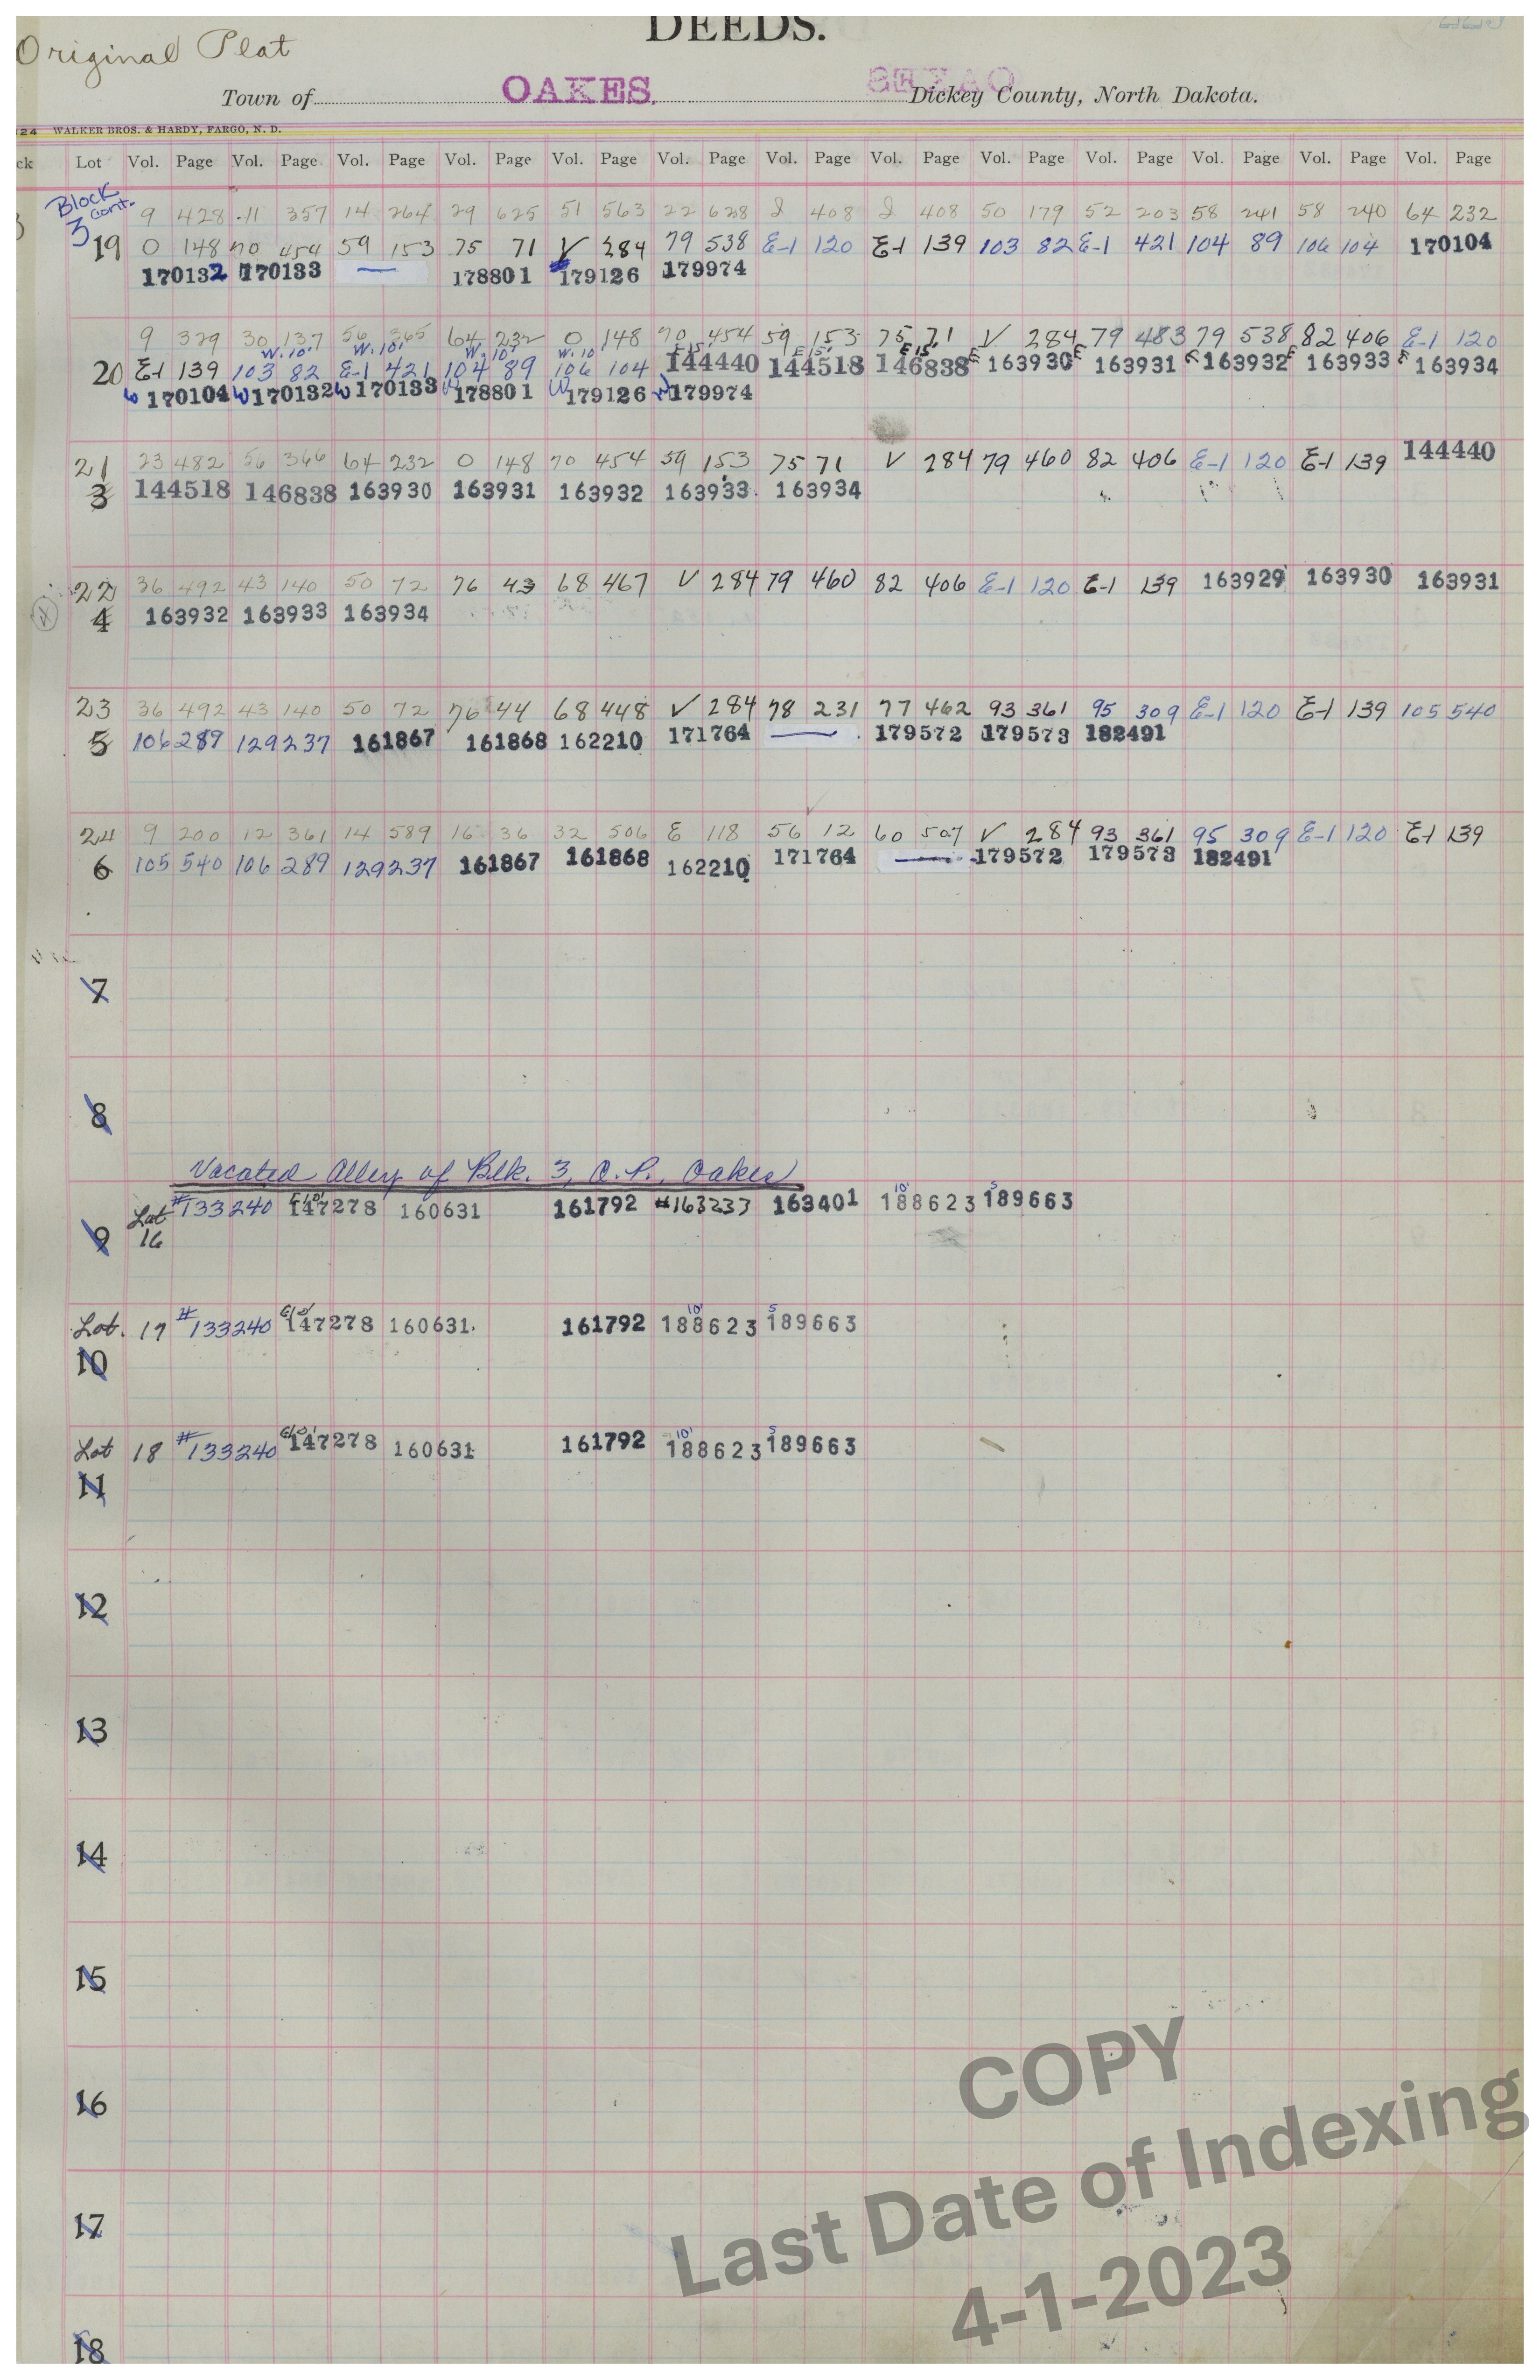 DEEDS.
Original Plat
Town of OAKES. Dickey County, North Dakota.
24 WALKER BROS. & HARDY, FARGO, N. D.
ck Lot Vol. Page Vol. Page Vol. Page Vol. Page Vol. Page Vol. Page Vol. Page Vol. Page Vol. Page Vol. Page Vol. Page Vol. Page Vol. Page
Block 3 cont.
9 428 11 357 14 264 29 625 51 563 22 628 408 408 50 179 52 203 58 241 58 240 64 232
19 O 148 70 454 59 153 75 71 V 284 79 538 E-1 120 E-1 139 103 82 E-1 421 104 89 106 104 170104
170132 170133 — 178801 179126 179974
9 329 30 137 56 365 64 232 O 148 70 454 59 153 75 71 V 284 79 483 79 538 82 406 E-1 120
W. 10' W. 10' W. 10' W. 10' E 15' E 15' E 15
20 E-1 139 103 82 E-1 421 104 89 106 104 144440 144518 146838 E 163930 E 163931 E 163932 E 163933 E 163934
W 170104 W 170132 W 170133 W 178801 W 179126 W 179974
21 23 482 56 366 64 232 O 148 70 454 59 153 75 71 V 284 79 460 82 406 E-1 120 E-1 139 144440
3 144518 146838 163930 163931 163932 163933 163934
22 36 492 43 140 50 72 76 43 68 467 V 284 79 460 82 406 E-1 120 E-1 139 163929 163930 163931
4 163932 163933 163934
23 36 492 43 140 50 72 76 44 68 448 V 284 78 231 77 462 93 361 95 309 E-1 120 E-1 139 105 540
5 106 289 129 237 161867 161868 162210 171764 — 179572 179573 182491
24 9 200 12 361 14 589 16 36 32 506 E 118 56 12 60 507 V 284 93 361 95 309 E-1 120 E-1 139
6 105 540 106 289 129 237 161867 161868 162210 171764 — 179572 179573 182491
7
8
Vacated Alley of Blk. 3, O.P., Oakes
Lot #133240 E10' 147278 160631 161792 #163233 163401 10' 188623 5 189663
9 16
Lot. 17 #133240 E10' 147278 160631 161792 10' 188623 5 189663
10
Lot 18 #133240 E10' 147278 160631 161792 10' 188623 5 189663
11
12
13
14
15
16
17
18
COPY
Last Date of Indexing
4-1-2023